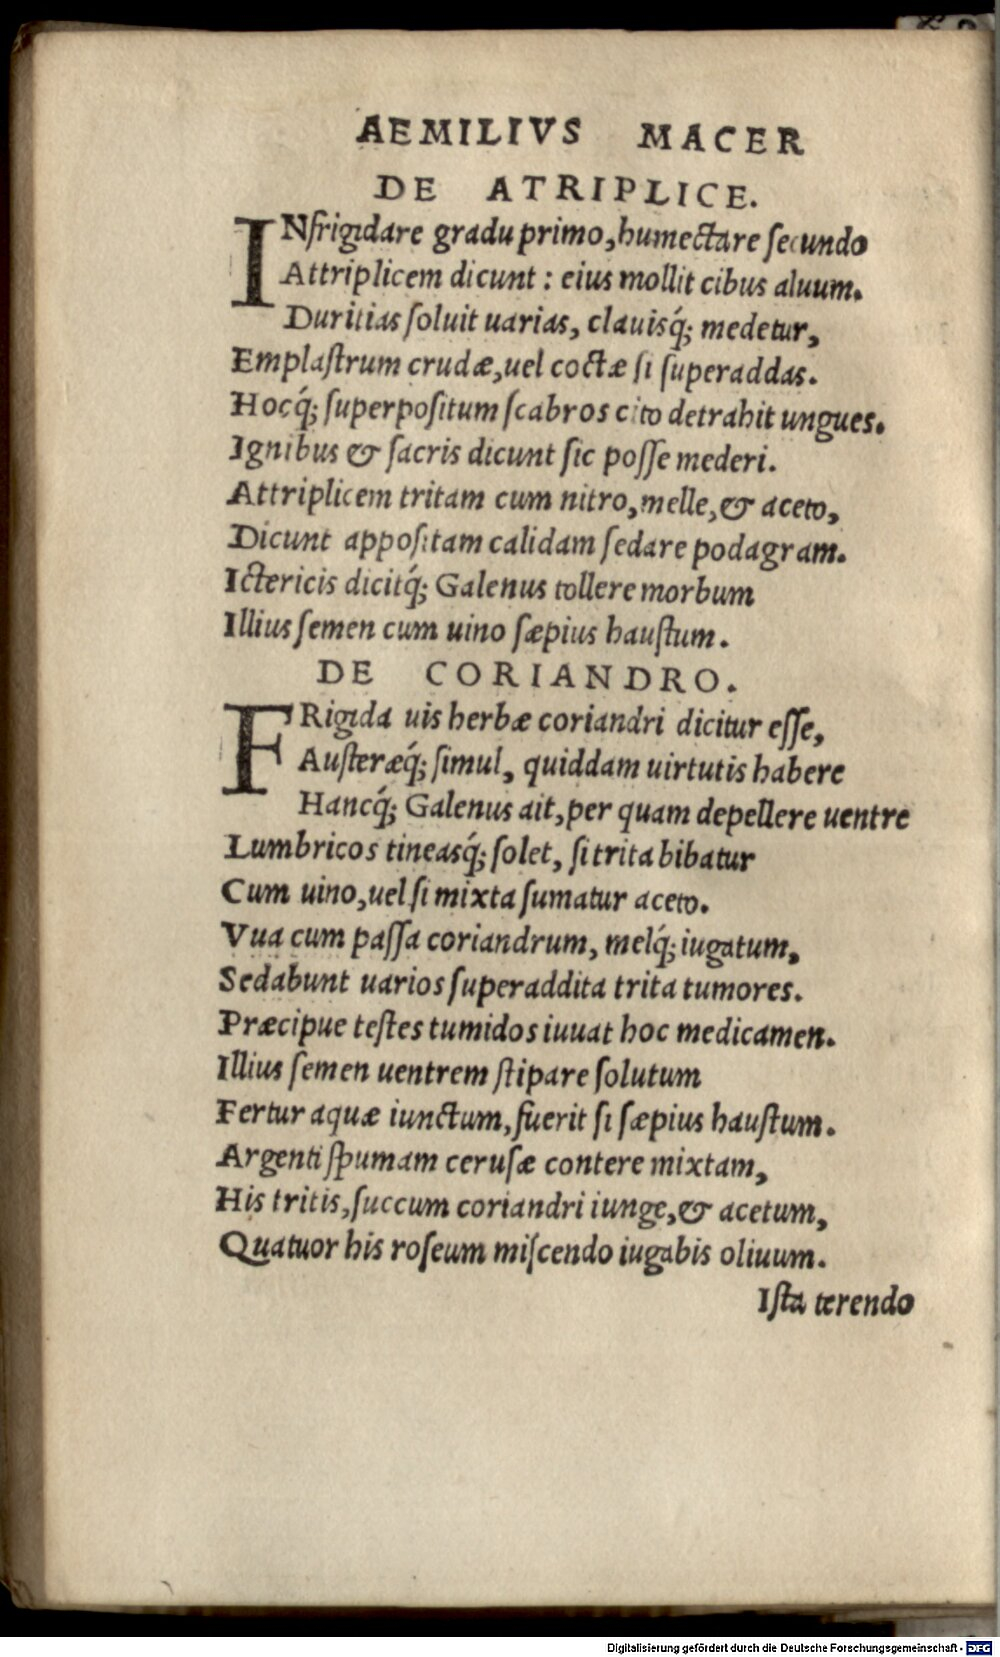 AEMILIVS MACER
DE ATRIPLICE.
INfrigidare gradu primo, humectare ſecundo
Attriplicem dicunt: eius mollit cibus aluum.
Duritias ſoluit uarias, clauisq́; medetur,
Emplaſtrum crudæ, uel coctæ ſi ſuperaddas.
Hocq́; ſuperpoſitum ſcabros cito detrahit ungues.
Ignibus & ſacris dicunt ſic poſſe mederi.
Attriplicem tritam cum nitro, melle, & aceto,
Dicunt appoſitam calidam ſedare podagram.
Ictericis dicitq́; Galenus tollere morbum
Illius ſemen cum uino ſæpius hauſtum.
DE CORIANDRO.
FRigida uis herbæ coriandri dicitur eſſe,
Auſteræq́; ſimul, quiddam uirtutis habere
Hancq́; Galenus ait, per quam depellere uentre
Lumbricos tineasq́; ſolet, ſi trita bibatur
Cum uino, uel ſi mixta ſumatur aceto.
Vua cum paſſa coriandrum, melq́; iugatum,
Sedabunt uarios ſuperaddita trita tumores.
Præcipue teſtes tumidos iuuat hoc medicamen.
Illius ſemen uentrem ſtipare ſolutum
Fertur aquæ iunctum, fuerit ſi ſæpius hauſtum.
Argenti ſpumam ceruſæ contere mixtam,
His tritis, ſuccum coriandri iunge, & acetum,
Quatuor his roſeum miſcendo iugabis oliuum.
Iſta terendo
Digitalisierung gefördert durch die Deutsche Forschungsgemeinschaft - DFG